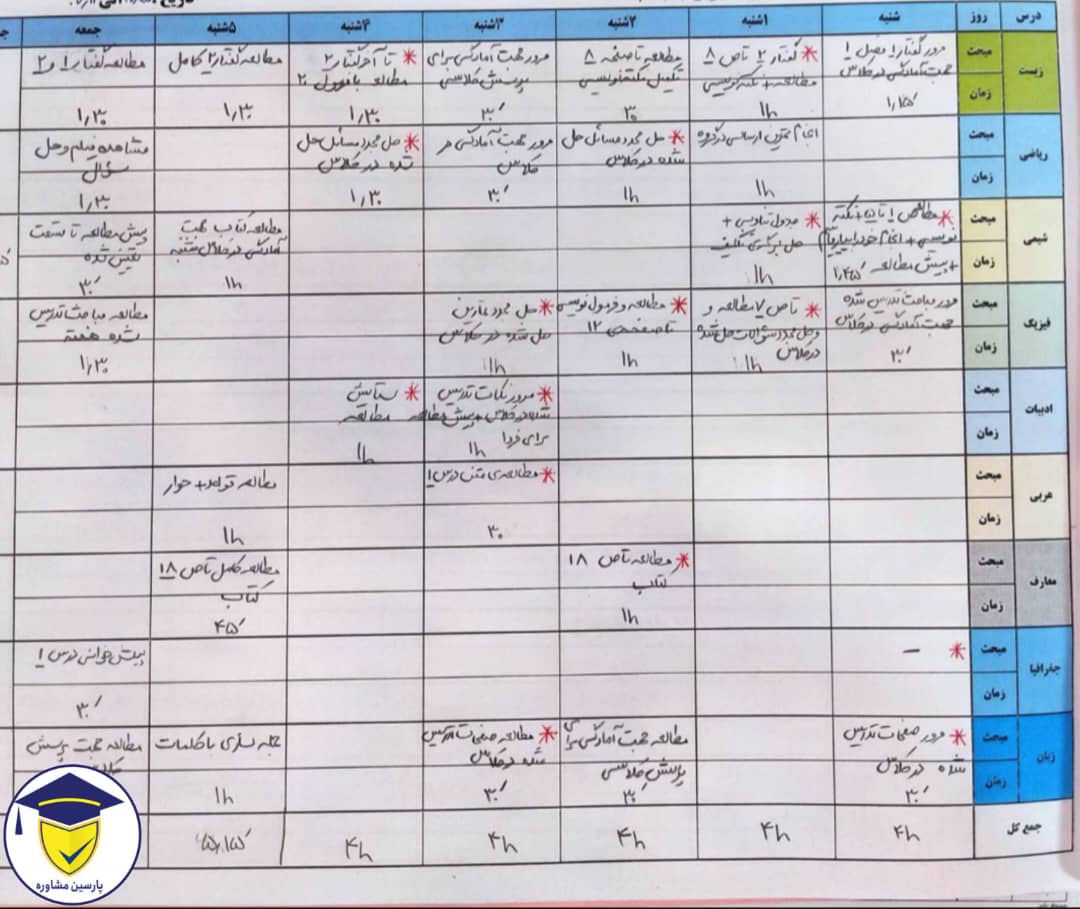 درس روز شنبه ۱شنبه ۲شنبه ۳شنبه ۴شنبه ۵شنبه جمعه
زیست
مبحث
مرور گفتار ۱ فصل ۱
جهت آمادگی در کلاس
* گفتار ۲ تا ص ۸
مطالعه + نکته نویسی
مطالعه تا صفحه ۸
تکمیل نکته نویسی
مرور جهت آمادگی برای
پرسش کلاسی
* تا آخر گفتار ۲
مطالعه
مطالعه گفتار ۲ کامل
مطالعه گفتار ۱ و ۲
زمان
۱,۱۵′ ۱h ۳۰ ۳۰′ ۱,۳۰ ۱,۳۰ ۱,۳۰
ریاضی
مبحث
انجام تمرین ارسالی در گروه
* حل مجدد مسائل حل
شده در کلاس
مرور جهت آمادگی در
کلاس
* حل مجدد مسائل حل
شده در کلاس
مشاهده فیلم و حل
سؤال
زمان
۱h ۱h ۳۰′ ۱,۳۰ ۱,۳۰
شیمی
مبحث
* نکته
نویسی + انجام
+ پیش مطالعه ۱,۴۵′
* جدول تناوبی +
تکلیف
مطالعه کتاب جهت
آمادگی در کلاس شنبه
پیش مطالعه تا قسمت
تعیین شده
زمان
۱h ۱h ۳۰′
فیزیک
مبحث
مرور مباحث تدریس شده
جهت آمادگی در کلاس
* تا ص ۷ مطالعه و
و حل مجدد سؤالات حل شده
در کلاس
* مطالعه و فرمول نویسی
تا صفحه ی ۱۲
* حل مجدد تمارین
حل شده در کلاس
مطالعه مباحث تدریس
شده هفته
زمان
۳۰′ ۱h ۱h ۱h ۱,۳۰
ادبیات
مبحث
* مرور نکات تدریس
شده در کلاس + پیش مطالعه
برای فردا
* ستایش
مطالعه
زمان
۱h ۱h
عربی
مبحث
* مطالعه ی متن درس ۱
مطالعه قواعد + حوار
زمان
۳۰ ۱h
معارف
مبحث
* مطالعه تا ص ۱۸
کتاب
مطالعه کامل تا ص ۱۸
کتاب
زمان
۱h ۴۵′
جغرافیا
مبحث
* –
پیش خوانی درس ۱
زمان
۳۰′
زبان
مبحث
* مرور صفحات تدریس
شده در کلاس
مطالعه جهت آمادگی برای
پرسش کلاسی
* مطالعه صفحات تدریس
شده در کلاس
جمله سازی با کلمات
مطالعه جهت پرسش
زمان
۳۰′ ۳۰′ ۳۰′ ۱h
جمع کل ۴h ۴h ۴h ۴h ۴h
پارسین مشاوره